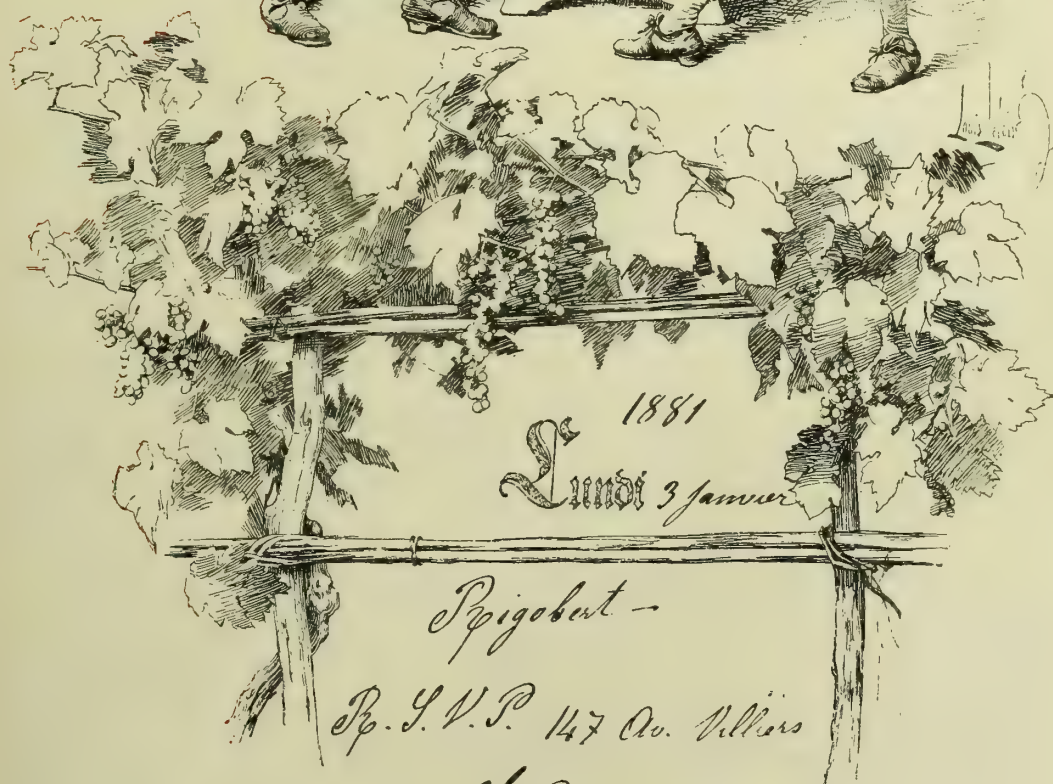 1881
Lundi 3 Janvier
Rigobert —
R. S. V. P. 147 Av. Villiers